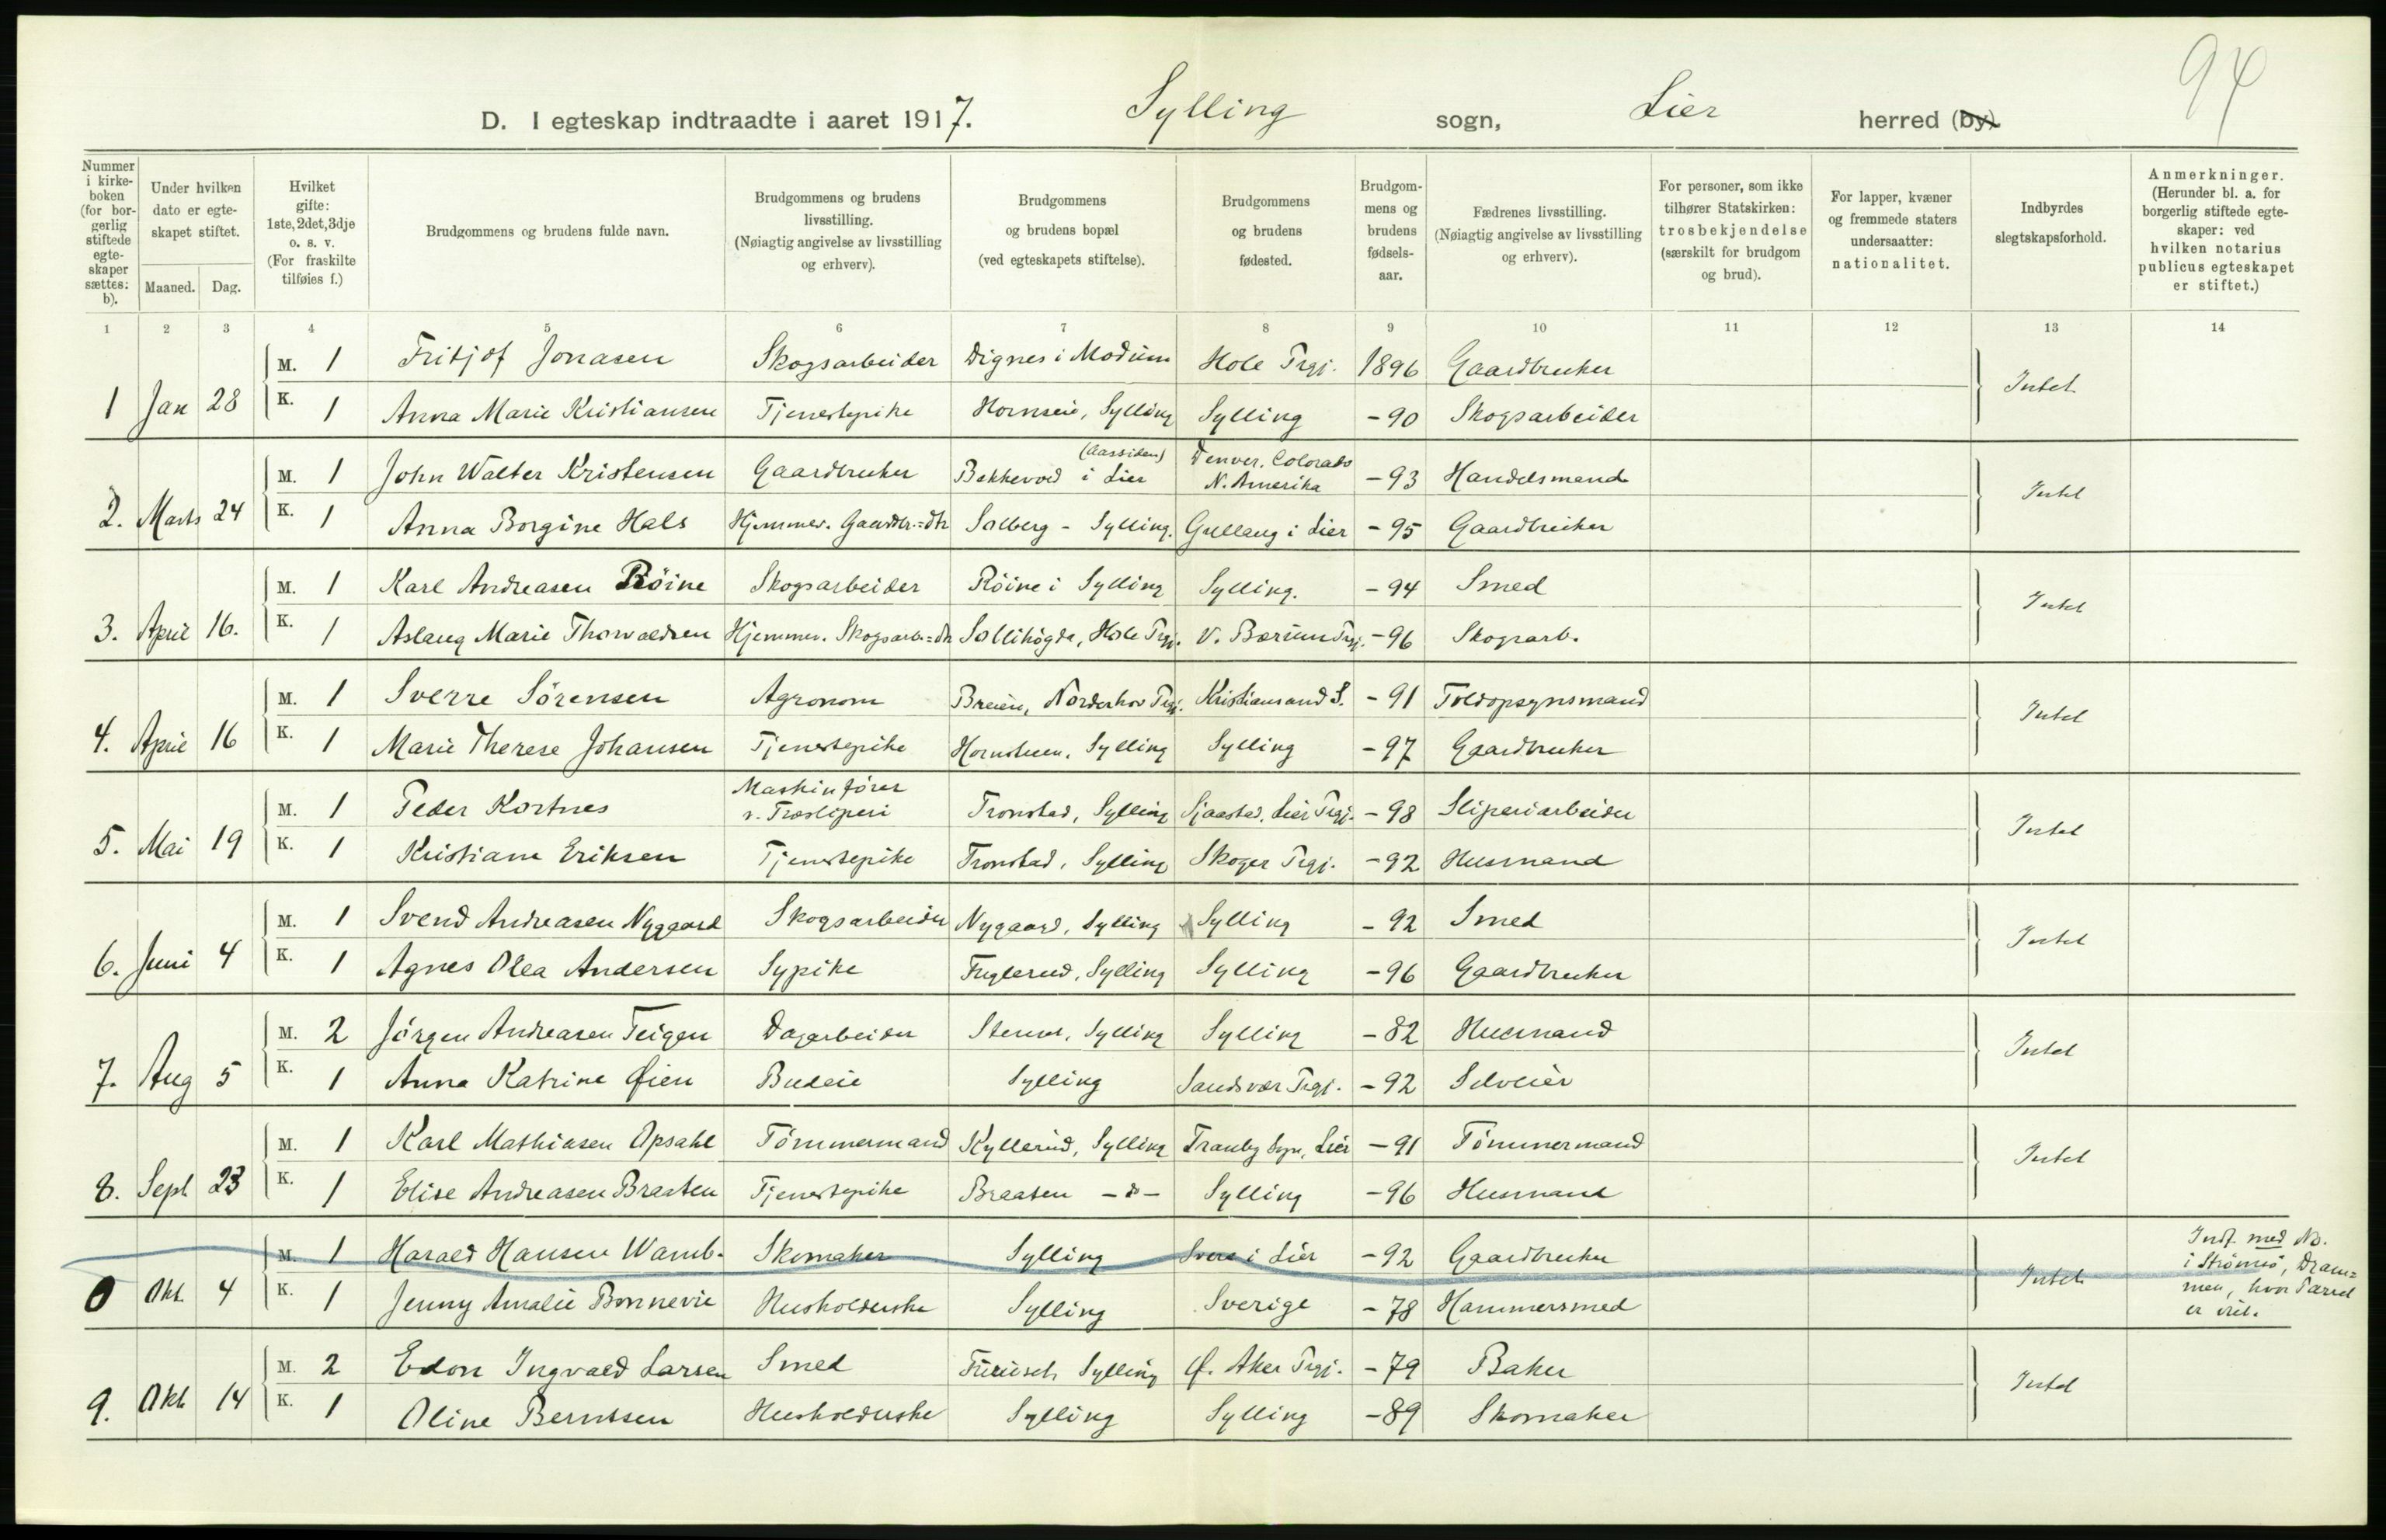 94
D. I egteskap indtraadte i aaret 1917. Sylling sogn, Lier herred (by).
Nummer i kirke-boken (for bor-gerlig stiftede egte-skaper sættes: b).
Under hvilken dato er egte-skapet stiftet.
Maaned. Dag.
Hvilket gifte: 1ste, 2det, 3dje o. s. v. (For fraskilte tilføies f.)
Brudgommens og brudens fulde navn.
Brudgommens og brudens livsstilling. (Nøiagtig angivelse av livsstilling og erhverv).
Brudgommens og brudens bopæl (ved egteskapets stiftelse).
Brudgommens og brudens fødested.
Brudgom-mens og brudens fødsels-aar.
Fædrenes livsstilling. (Nøiagtig angivelse av livsstilling og erhverv).
For personer, som ikke tilhører Statskirken: trosbekjendelse (særskilt for brudgom og brud).
For lapper, kvæner og fremmede staters undersaatter: nationalitet.
Indbyrdes slegtskapsforhold.
Anmerkninger. (Herunder bl. a. for borgerlig stiftede egte-skaper: ved hvilken notarius publicus egteskapet er stiftet.)
1 2 3 4 5 6 7 8 9 10 11 12 13 14
M. 1 Fritjof Jonasen Skogsarbeider Dignes i Modum Hole Prgj. 1896 Gaardbruker
1 Jan 28 K. 1 Anna Marie Kristiansen Tjenestepike Hornseie, Sylling Sylling -90 Skogsarbeider Intet
M. 1 John Walter Kristensen Gaardbruker Bekkevold i Lier (Aassiden) Denver, Colorado N. Amerika -93 Handelsmand
2. Marts 24 K. 1 Anna Borgine Hals Hjemmev. Gaardbr.=dtr Solberg - Sylling. Gullaug i Lier -95 Gaardbruker Intet
M. 1 Karl Andreasen Röine Skogsarbeider Röine i Sylling Sylling. -94 Smed
3. April 16. K. 1 Aslaug Marie Thorvaldsen Hjemmev. Skogsarb=dtr Sollihögda, Hole Prgj. V. Bærum Prgj. -96 Skogsarb. Intet
M. 1 Sverre Sörensen Agronom Breien, Norderhov Prgj. Kristiansand S. -91 Toldopsynsmand
4. April 16 K. 1 Marie Therese Johansen Tjenestepike Hornsteen, Sylling Sylling -97 Gaardbruker Intet
M. 1 Peder Kortnes Maskinförer v. Træsliperi Tronstad, Sylling Sjaastad, Lier Prgj. -98 Sliperiarbeider
5. Mai 19 K. 1 Kristiane Eriksen Tjenestepike Tronstad, Sylling Skoger Prgj. -92 Husmand Intet
M. 1 Svend Andreasen Nygaard Skogsarbeider Nygaard, Sylling Sylling -92 Smed
6. Juni 4 K. 1 Agnes Olea Andersen Sypike Fuglerud, Sylling Sylling -96 Gaardbruker Intet
M. 2 Jörgen Andreasen Teigen Dagarbeider Stenset, Sylling Sylling -82 Husmand
7. Aug 5 K. 1 Anna Katrine Øien Budeie Sylling Sandsvær Prgj. -92 Selveier Intet
M. 1 Karl Mathiasen Opsahl Tömmermand Kyllerud, Sylling Tranby Sogn, Lier -91 Tömmermand
8. Sept 23 K. 1 Elise Andreasen Braaten Tjenestepike Braaten -d- Sylling -96 Husmand Intet
M. 1 Harald Hansen Wamb. Skomaker Sylling i Lier -92 Gaardbruker
0 Okt. 4 K. 1 Jenny Amalie Bonnevie Husholderske Sylling Sverige -78 Hammersmed Intet
Indf. med No. i Strömsö, Dram=men, hvor Parret er viet.
M. 2 Edon Ingvald Larsen Smed Sylling Ø. Aker Prgj. -79 Baker
9. Okt 14 K. 1 Oline Berntsen Husholderske Sylling Sylling -89 Skomaker Intet